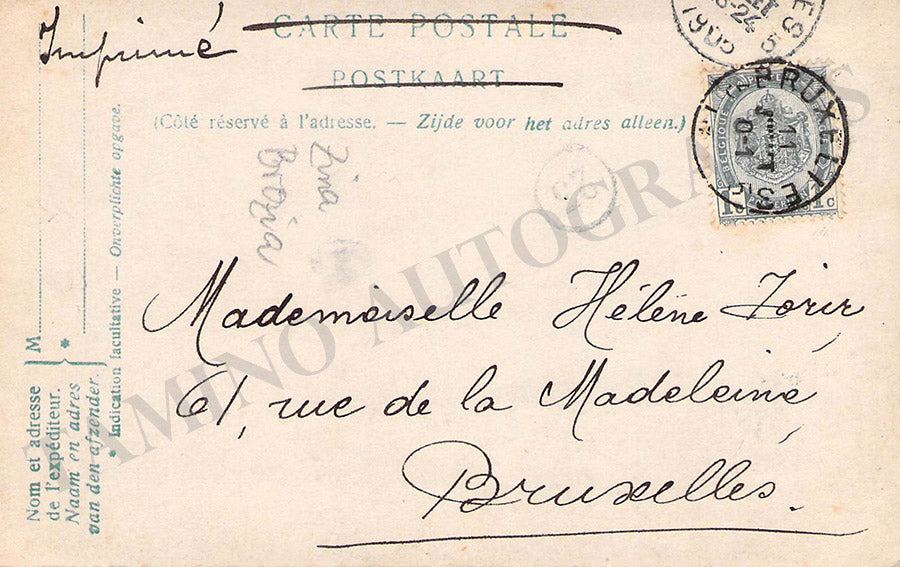 Imprimé
CARTE POSTALE
POSTKAART
(Côté réservé à l'adresse. — Zijde voor het adres alleen.)
BRUXELLES
11
1905
BELGIQUE
1c 1c
Zina
Brozia
Mademoiselle Hélène
61, rue de la Madeleine
Bruxelles.
M
*
Nom et adresse
de l'expéditeur.
Naam en adres
van den afzender.
* Indication facultative — Onverplichte opgave.
TAMINO AUTOGRAPHS